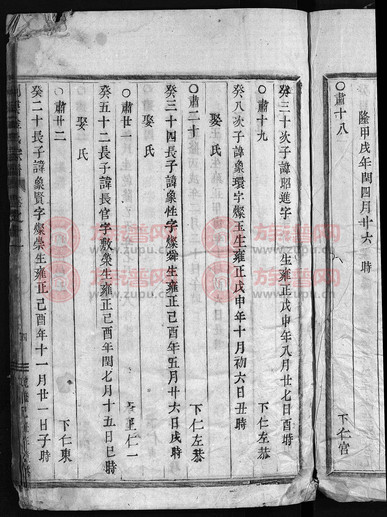 隆甲戌年閏四月廿六 時
○肅十八 下仁宫
癸三十次子諱昭進字 生雍正戊申年八月廿七日酉時
○肅十九 下仁左恭
癸八次子諱象環字燦玉生雍正戊申年十月初六日丑時
娶氏
○肅二十 下仁左恭
癸三十四長子諱象性字燦舜生雍正己酉年五月廿六日戌時
娶氏
○肅廿一 仁一
癸五十二長子諱長官字敷榮生雍正己酉年閏七月十五日巳時
娶氏
○肅廿二 下仁東
癸二十長子諱象賢字燦榮生雍正己酉年十一月廿一日子時
族譜网
www.zupu.cn